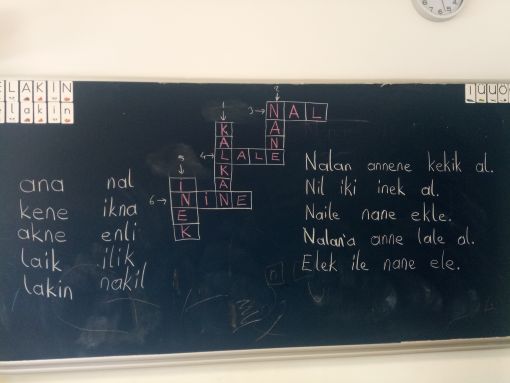 E L A K İ N
e l a k i n
I Ü Y Ö
1
2
3 → N A L
K A L K A N
N A N E
4 → L A L E
5
İ N E K
6 → N İ N E
ana nal
kene ikna
akne enli
laik ilik
lakin nakil
Nalan annene kekik al.
Nil iki inek al.
Naile nane ekle.
Nalan'a anne lale al.
Elek ile nane ele.